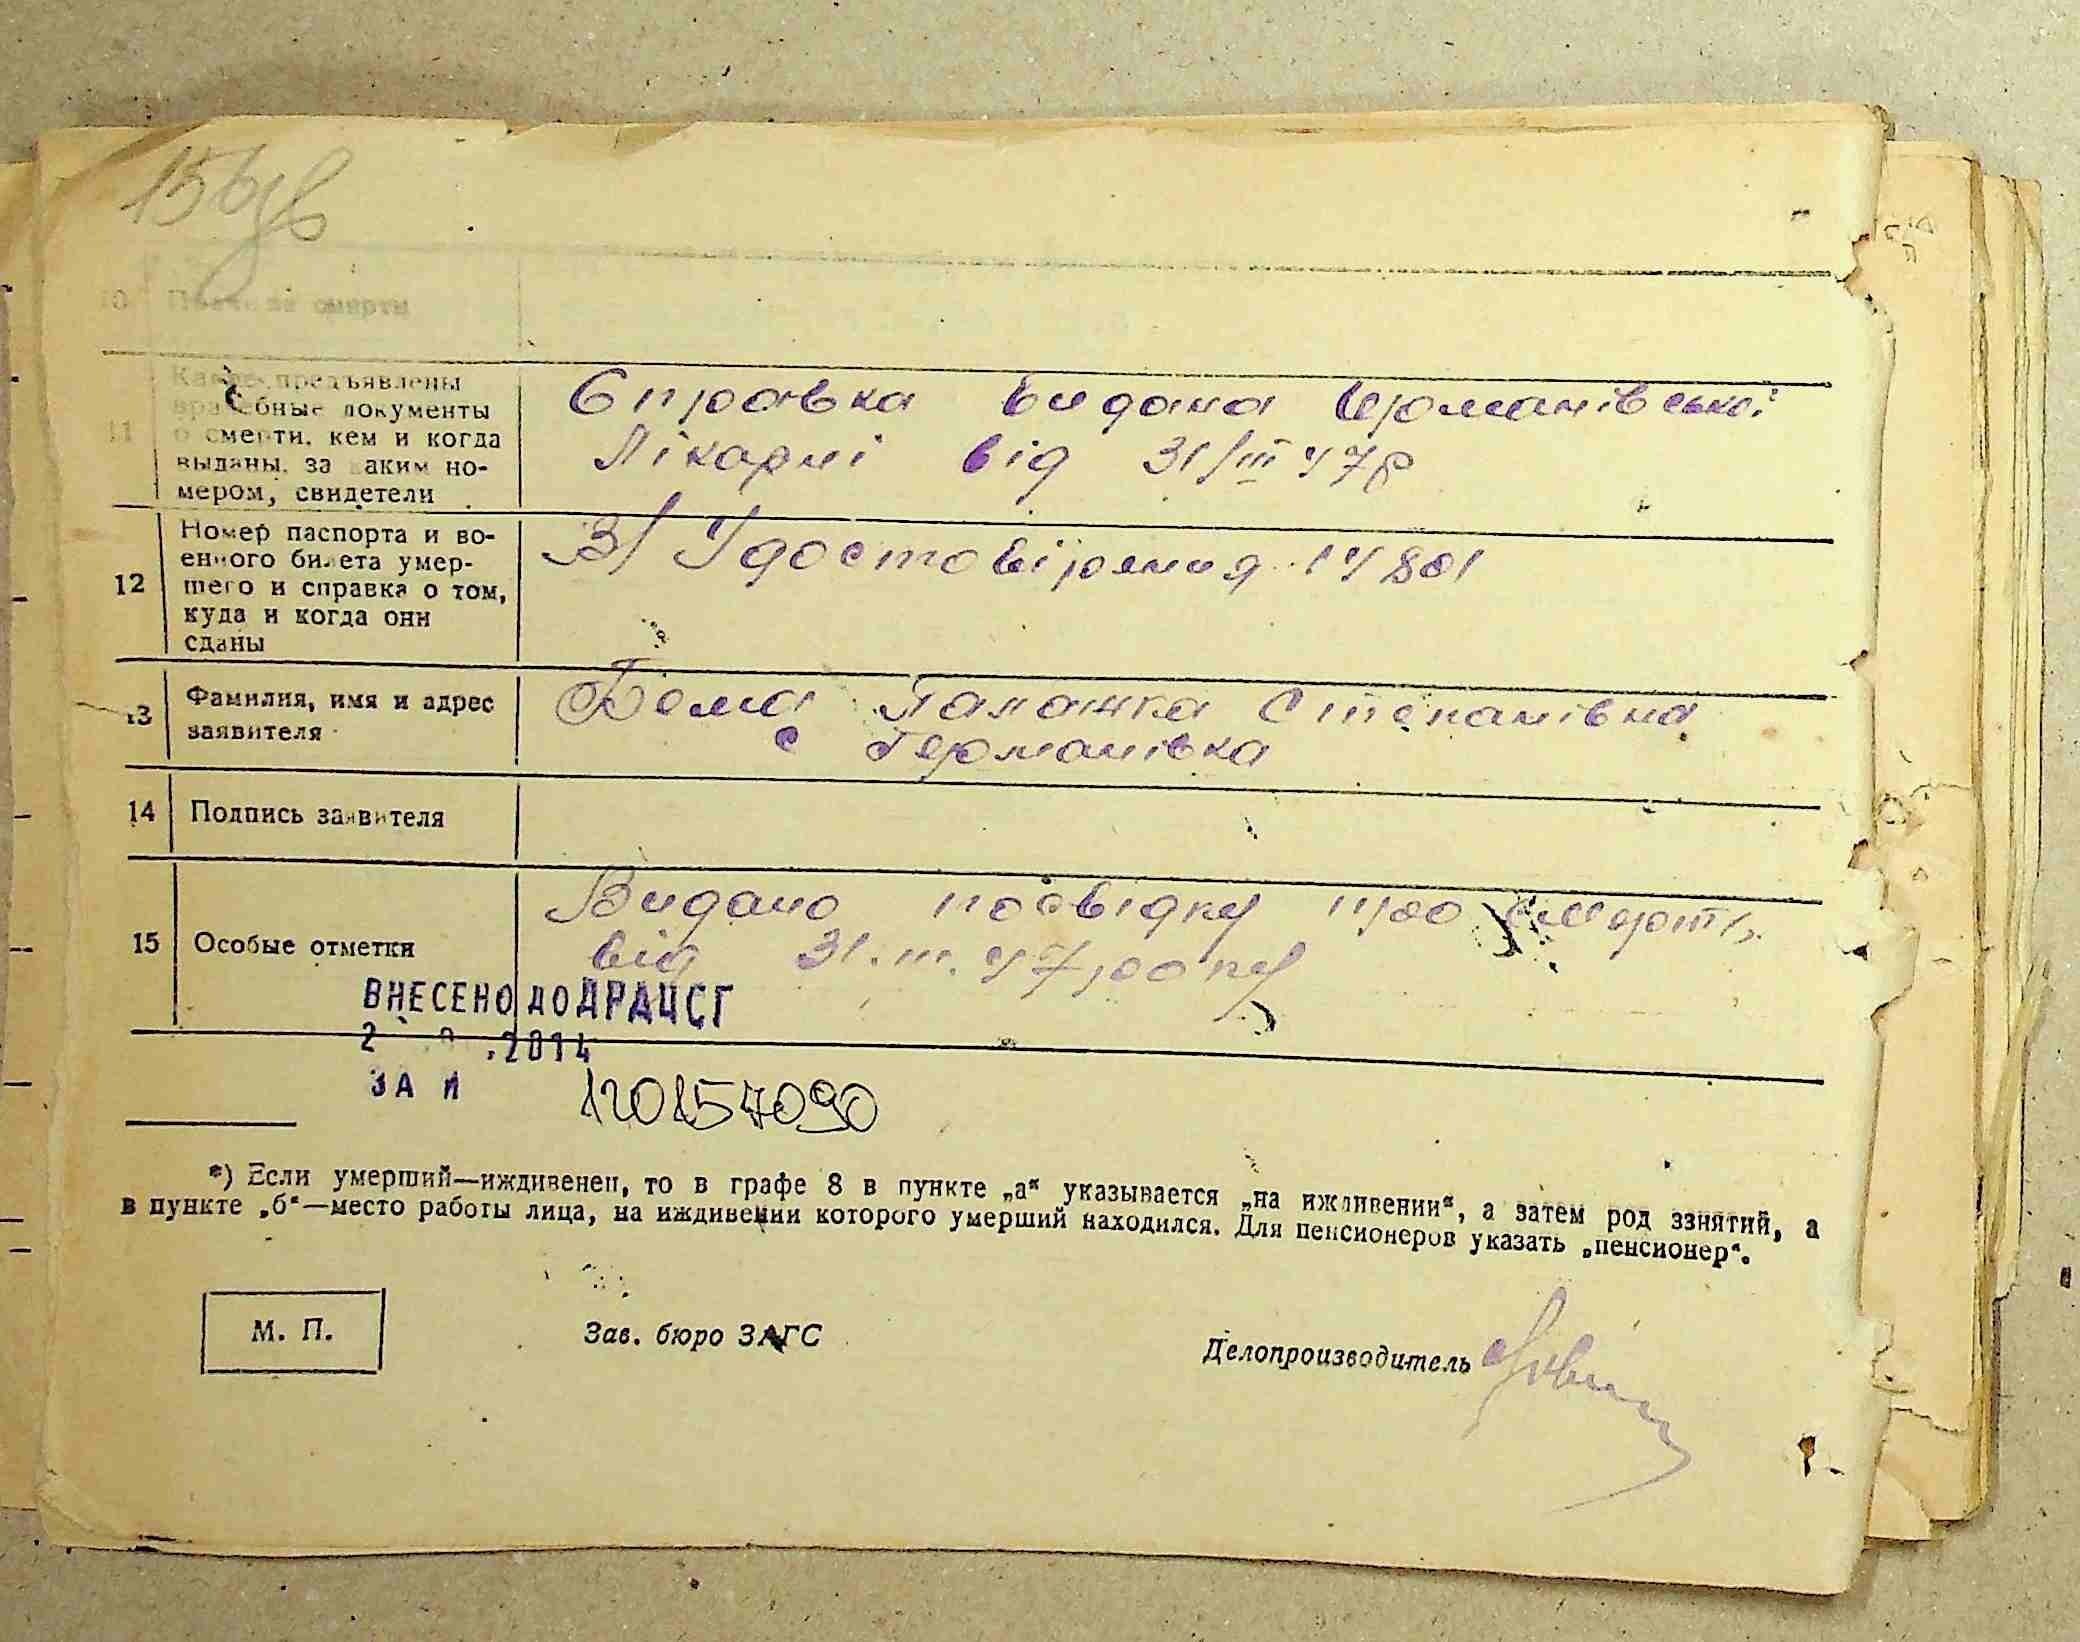 156зв
10 Причина смерти
11 Какие предъявлены
врачебные документы
о смерти, кем и когда
выданы, за каким но-
мером, свидетели
Справка видана Германівської
Лікарні від 31/III 47р
12 Номер паспорта и во-
енного билета умер-
шего и справка о том,
куда и когда они
сданы
З/ Удостовірения 14801
13 Фамилия, имя и адрес
заявителя
Палажка Степанівна
с Германівка
14 Подпись заявителя
15 Особые отметки
Видано посвідку про смерть
від 31.III.47 року
ВНЕСЕНО ДО ДРАЦСГ
.2014
ЗА №
120157090
*) Если умерший—иждивенец, то в графе 8 в пункте „а“ указывается „на иждивении“, а затем род занятий, а
в пункте „б“—место работы лица, на иждивении которого умерший находился. Для пенсионеров указать „пенсионер“.
М. П.
Зав. бюро ЗАГС
Делопроизводитель